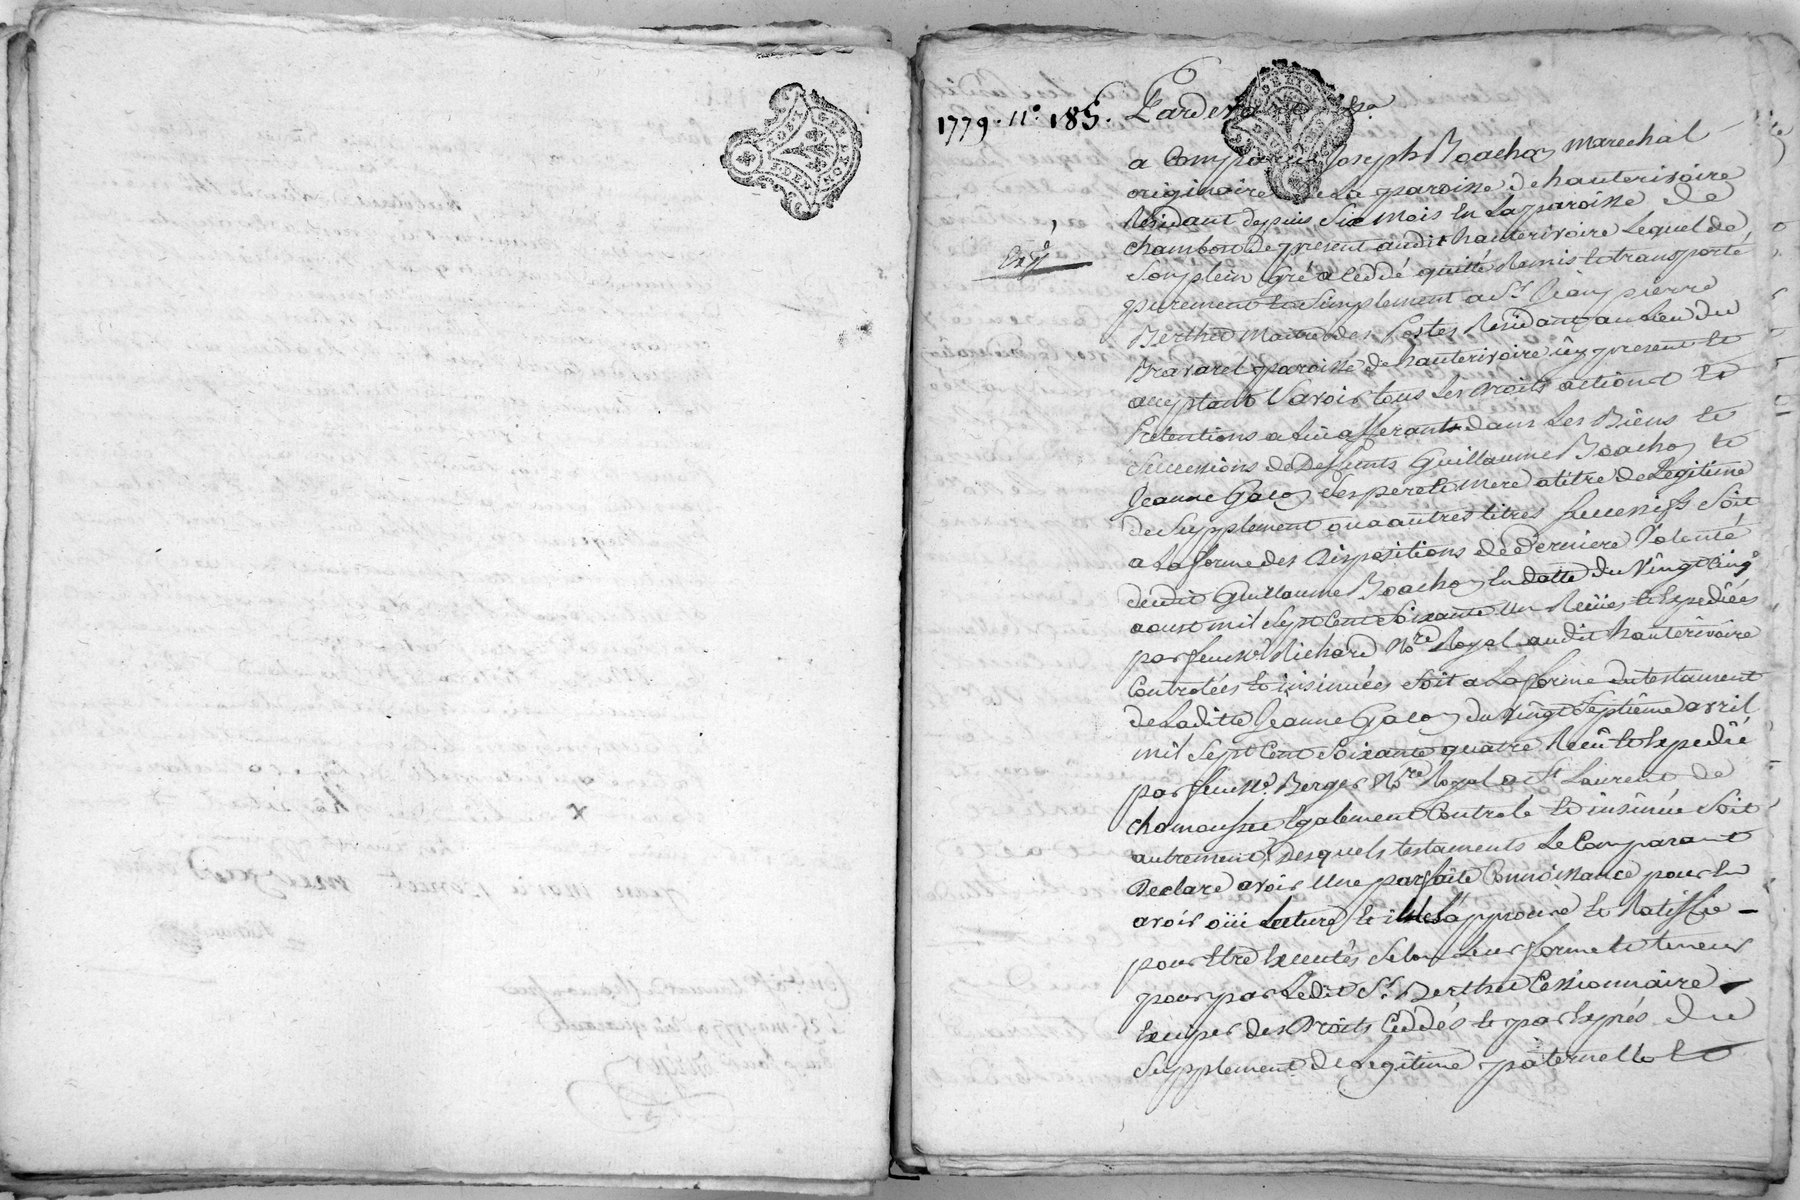 1779. 11e. 185. Pardevant
a Comparu Joseph Boachon marechal
originaire de La paroisse de hauterivoire
Residant depuis Six mois En La paroisse de
chambost de present audit hauterivoire Lequel de
Exp.é
Son plein Gré a Ceddé quitté Remis Et transporté
purement Et Simplement a Sr. Jean pierre
Berthet Maitre des postes Residant au Lieu du
Bravaret paroisse de hauterivoire icy present Et
acceptant Savoir tous Les Droits actions Et
Pretentions a Lui afferants dans Les Biens Et
Successions de Deffunts Guillaume Boachon Et
Jeanne Gacon Ses pere Et mere a titre de Legitime
de Supplement ou a autres titres Successifs Soit
a La forme des Dispositions de Derniere Volonté
dudit Guillaume Boachon En datte du Vingt Cinq
aoust mil Sept Cent Soixante Un Recües Et Expediées
par feu Me Richard Nore Royal audit hauterivoire
Controlées Et insinuées Soit a La forme du testament
de Laditte Jeanne Gacon du Vingt Septième avril
mil Sept Cent Soixante quatre Recû Et Expedié
par feu Me. Berger Nore Royal a St Laurent de
chamousset Egalement Controlé Et insinüé Soit
autrement, Desquels testaments Le Comparant
Declare avoir Une parfaite Connoissance pour En
avoir oüi Lecture Et il Les approuve Et Ratiffie –
pour Etre Executés Selon Leur forme Et teneur
pour par Ledit Sr. Berthet Cessionnaire
Exciper des Droits Ceddés Et par Exprés du
Supplement de Legitime paternelle Et